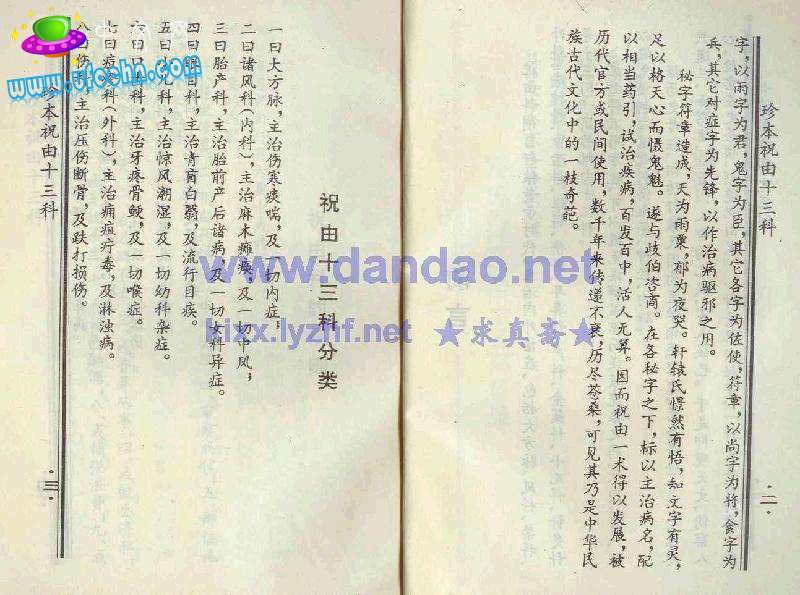 珍本祝由十三科
·二·
字，以雨字为君，鬼字为臣，其它各字为佐使，符章，以尚字为将，食字为
兵，其它对症字为先锋，以作治病驱邪之用。
秘字符章造成，天为雨粟，邪为夜哭。轩辕氏憬然有悟，知文字有灵，
足以格天心而慑鬼魅。遂与歧伯咨商。在各秘字之下，标以主治病名，配
以相当药引，试治疾病，百发百中，活人无算。因而祝由一术得以发展，被
历代官方或民间使用，数千年来传递不衰，历尽苍桑，可见其乃是中华民
族古代文化中的一枝奇葩。
祝由十三科分类
一曰大方脉，主治伤寒痰喘，及一切内症。
二曰诸风科（内科），主治麻木瘫痪，及一切中风，
三曰胎产科，主治胎前产后诸病，及一切女科异症。
四曰眼目科，主治青肓白翳，及流行目疾。
五曰儿科，主治惊风潮湿，及一切幼科杂症。
六曰口齿科，主治牙疼骨鲠，及一切喉症。
七曰疮疡科（外科），主治痈疽疔毒，及淋浊病。
八曰伤科，主治压伤断骨，及跌打损伤。
珍本祝由十三科
·三·
www.dandao.net
hixx.lyzhf.net ★求真斋★
www.ufochn.com